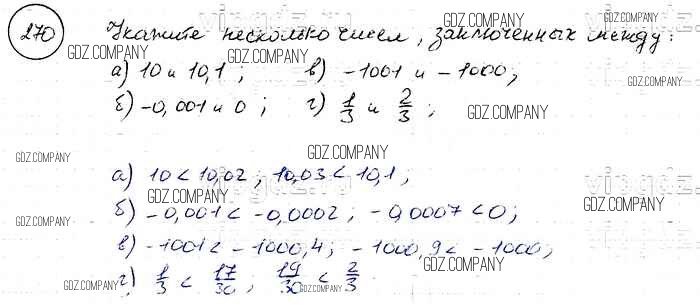 270 Укажите несколько чисел, заключенных между:
GDZ.COMPANY GDZ.COMPANY
а) 10 и 10,1; в) -1001 и -1000;
GDZ.COMPANY GDZ.COMPANY
б) -0,001 и 0; г) 1/3 и 2/3;
GDZ.COMPANY
GDZ.COMPANY
GDZ.COMPANY
а) 10 < 10,02; 10,03 < 10,1;
GDZ.COMPANY GDZ.COMPANY
б) -0,001 < -0,0002; -0,0007 < 0;
GDZ.COMPANY
в) -1001 < -1000,4; -1000,9 < -1000;
GDZ.COMPANY
г) 1/3 < 17/30; 19/30 < 2/3
GDZ.COMPANY GDZ.COMPANY